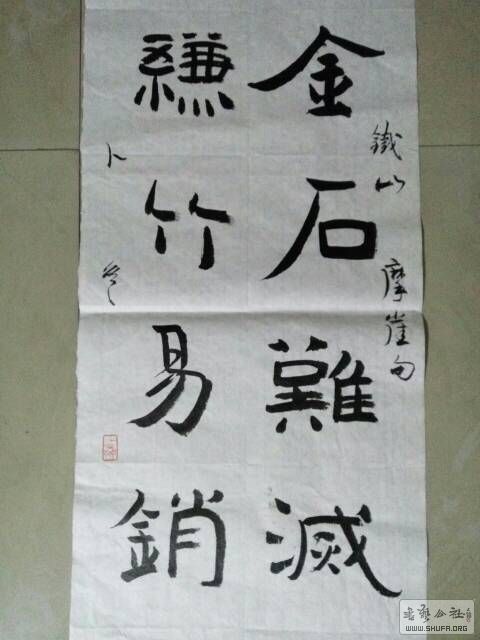 金石難滅
縑竹易銷
鐵山摩崖句
卜
WWW.SHUFA.ORG